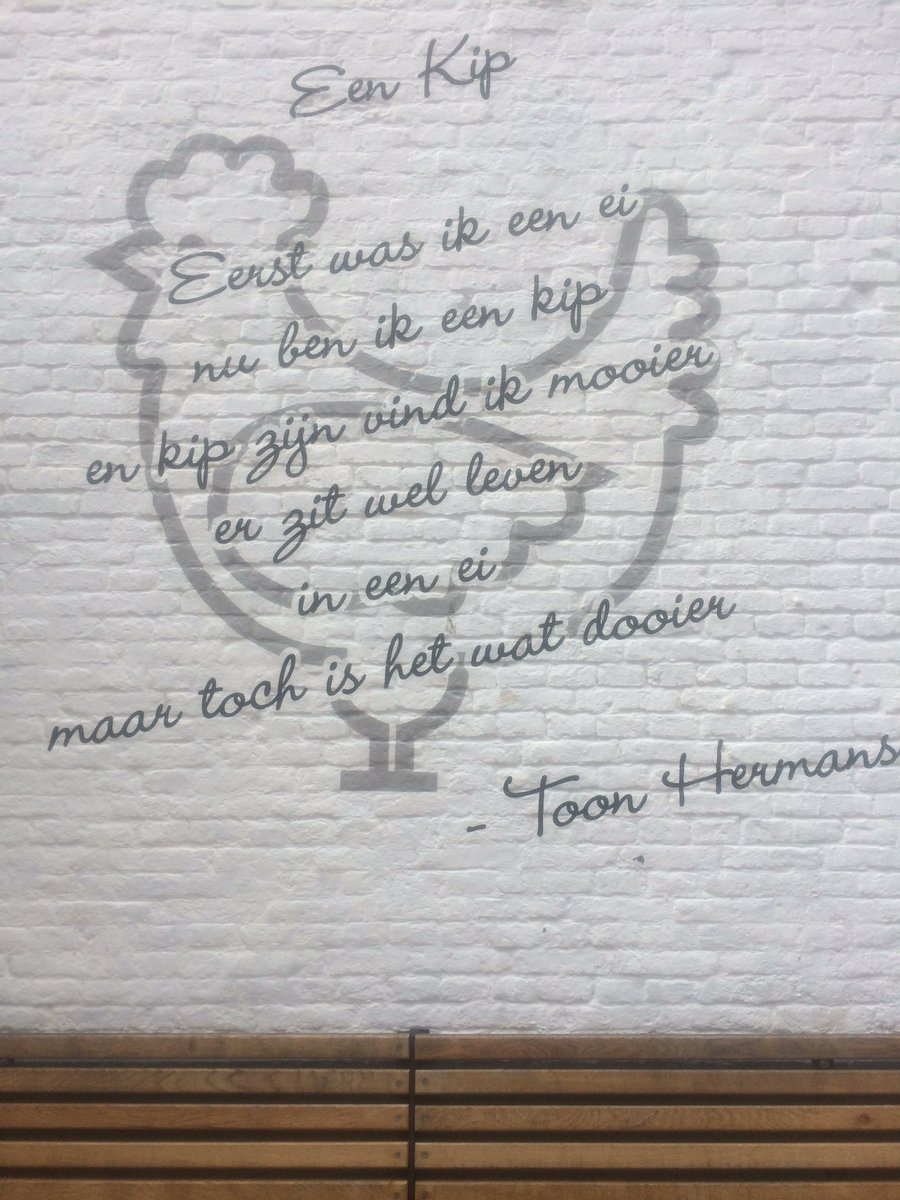 Een Kip
Eerst was ik een ei
nu ben ik een kip
en kip zijn vind ik mooier
er zit wel leven
in een ei
maar toch is het wat dooier
- Toon Hermans